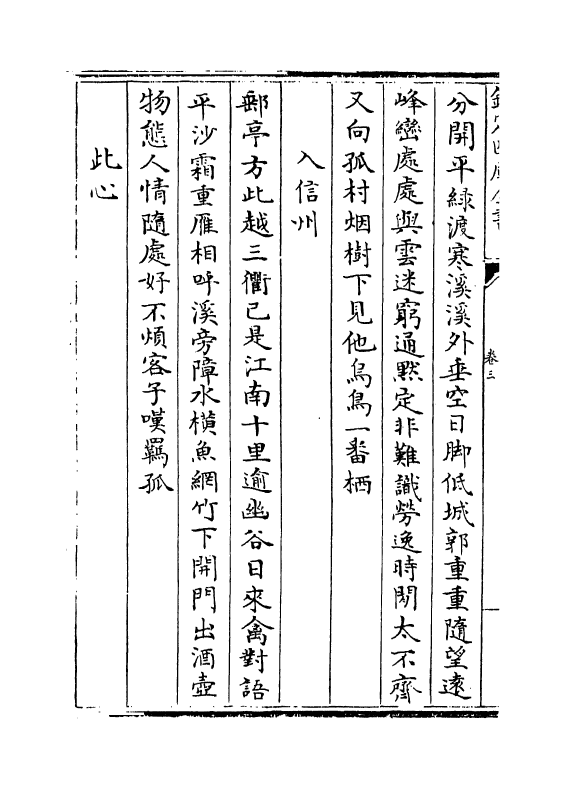 欽定四庫全書
卷三
分開平緑渡寒溪溪外垂空日脚低城郭重重隨望逺
峰巒處處與雲迷窮通黙定非難識勞逸時閱太不齊
又向孤村烟樹下見他烏鳥一番栖
入信州
郵亭方此越三衢已是江南十里逾幽谷日來禽對語
平沙霜重雁相呼溪旁障水橫魚網竹下開門出酒壺
物態人情隨處好不煩客子嘆羈孤
此心